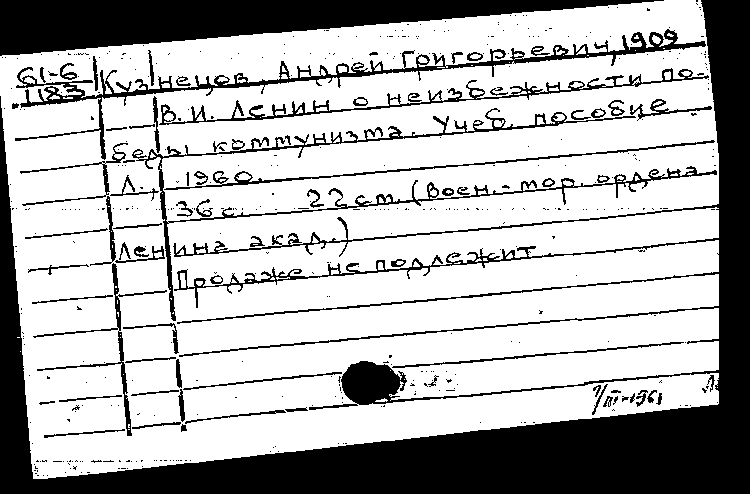 61-6
1183
Кузнецов, Андрей Григорьевич, 1909
В. И. Ленин о неизбежности по-
беды коммунизма. Учеб. пособие
Л., 1960.
36 с. 22 см. (Воен.-мор. ордена
Ленина акад.)
Продаже не подлежит.
7/III-1961